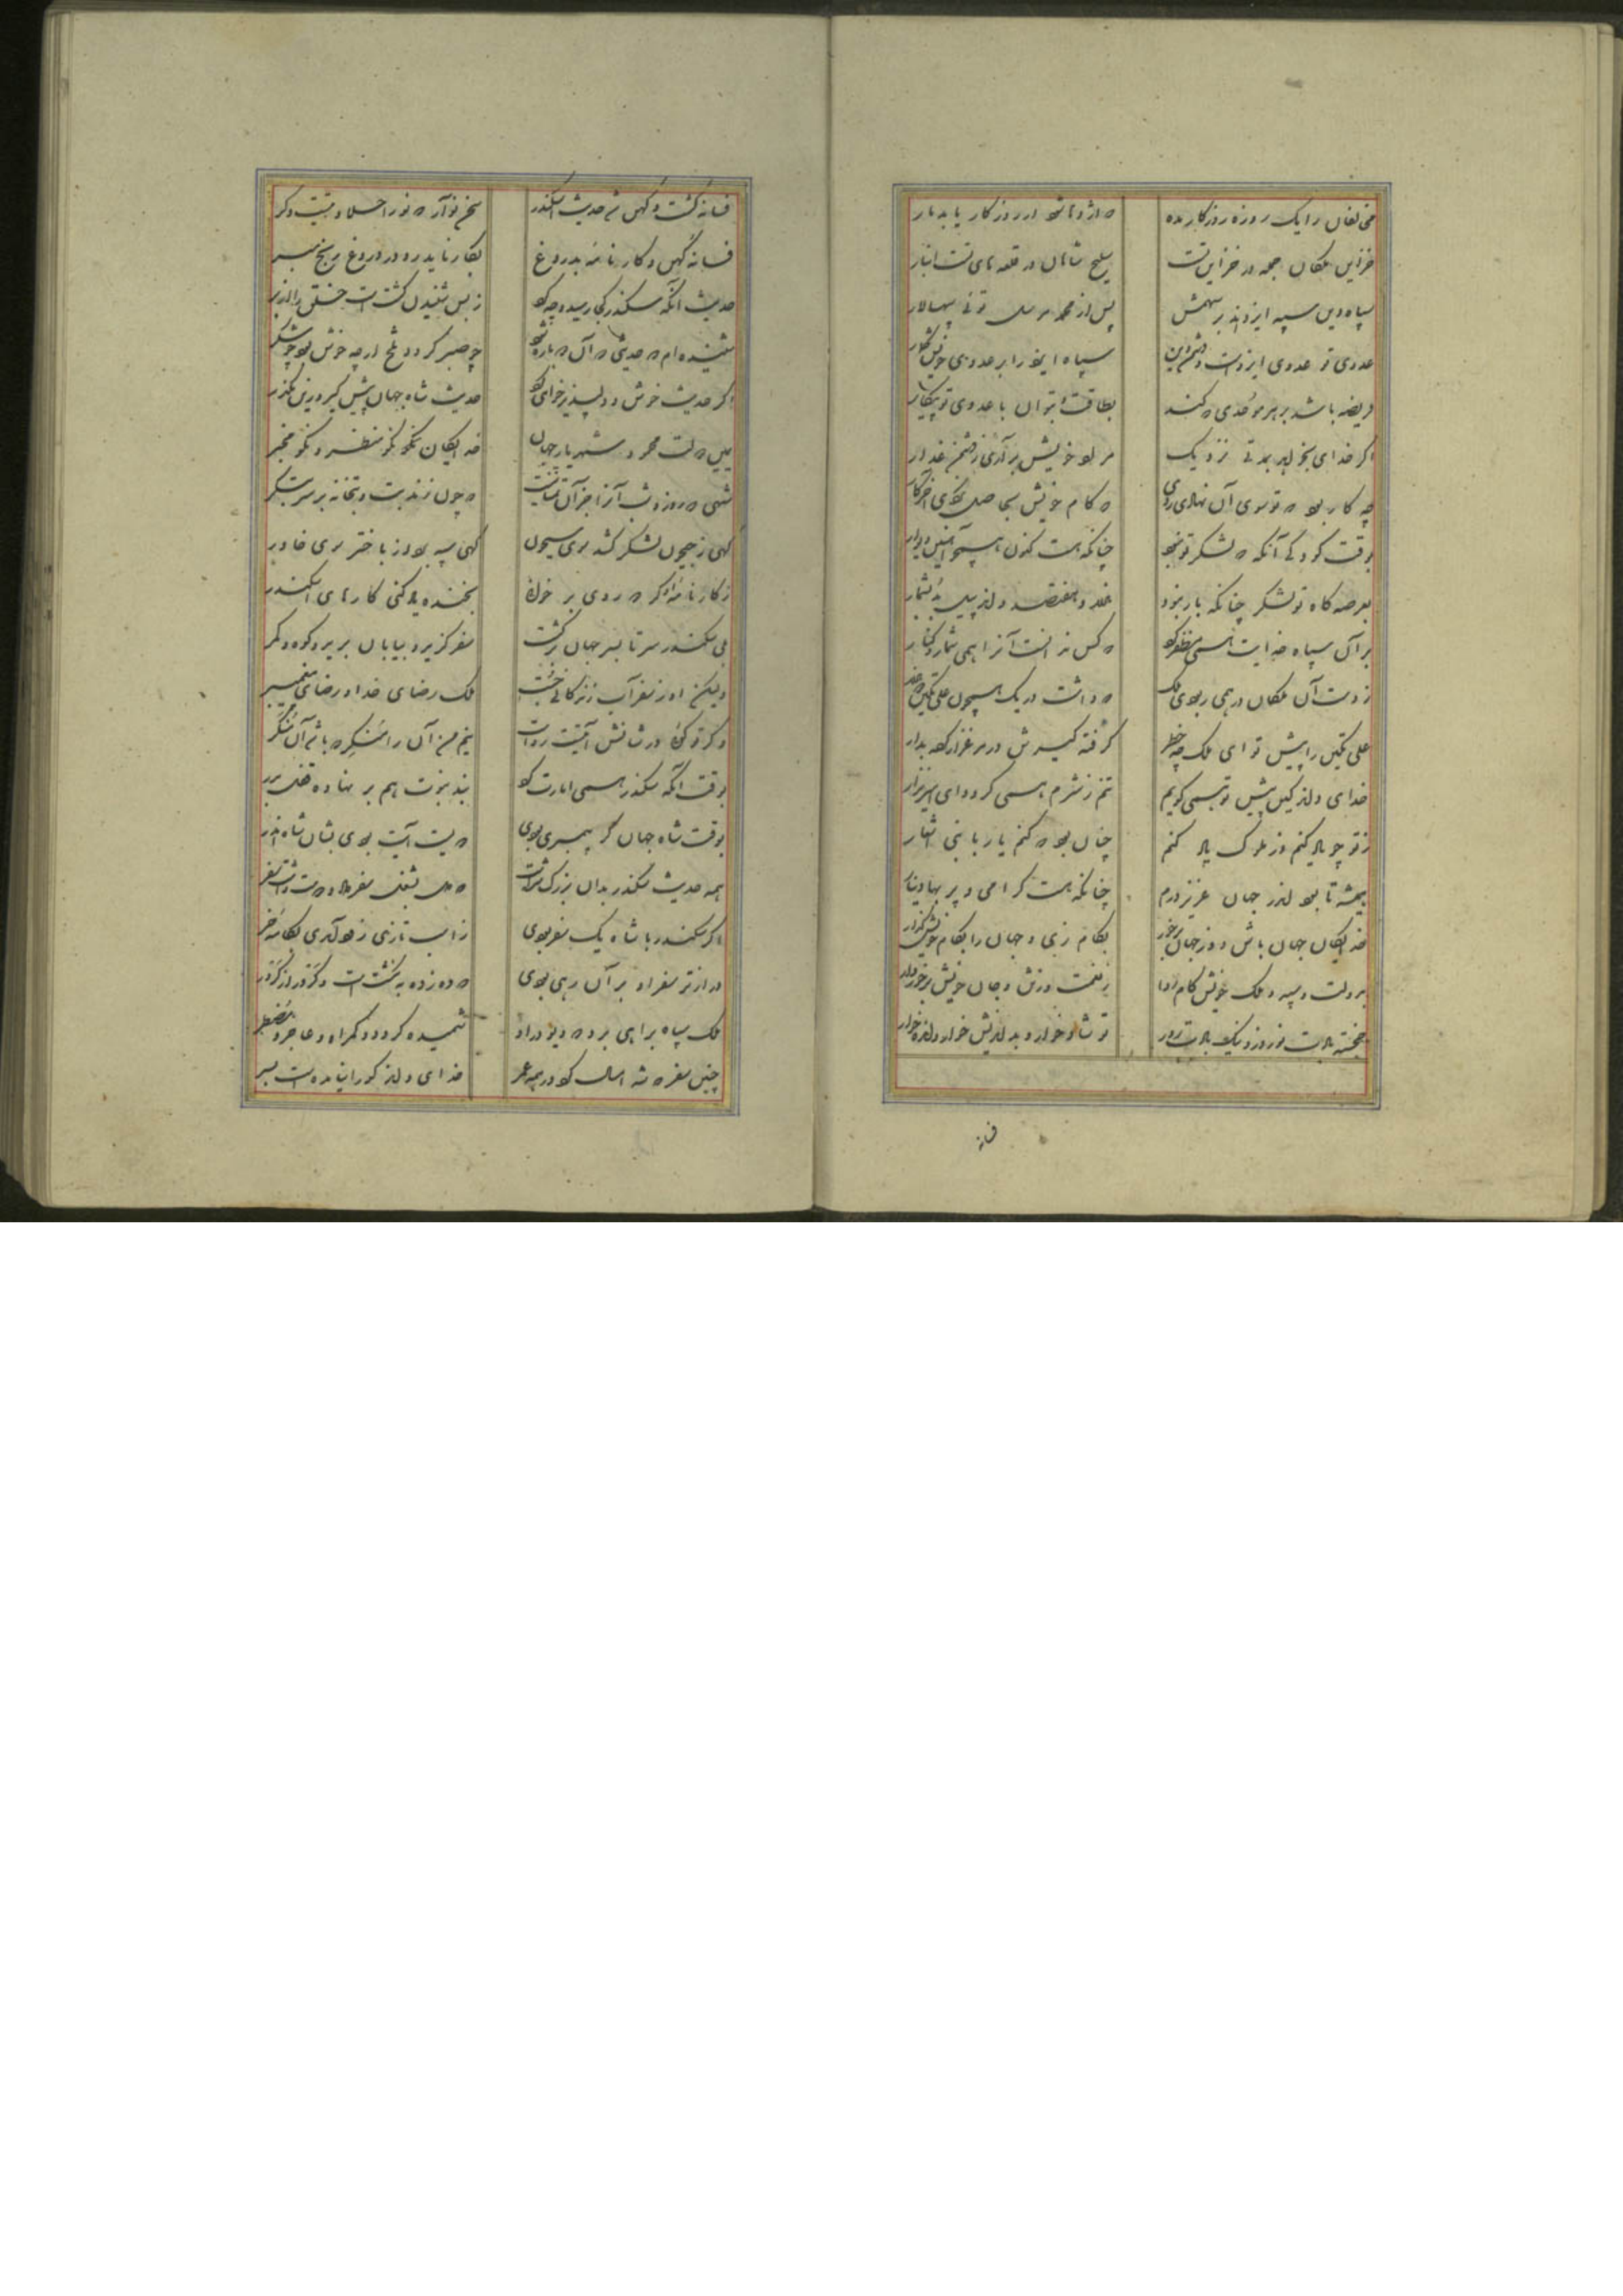 مخالفان را یک روزه روزگار مده که اژدها شود ار روزگار یابد مار
خزاین ملکان جمله در خزاین تست سلیح شاهان در قلعه‌های تست انبار
سپاه دین سپه ایزدند بر سهمش پس از محمد مرسل توئی سپهسالار
عدوی تو عدوی ایزدست و دشمن دین سپاه ایزد را بر عدوی خویش گمار
فریضه باشد بر هر موحدی که کند بطاقت و بتوان با عدوی تو پیکار
اگر خدای بخواهد بمدتی نزدیک مراد خویش برآری ز دشمن غدار
چه کار بود که تو سوی آن نهادی روی که کام خویش بحاصل نکردی آخر کار
بوقت کودکی آنکه که لشکر تو نبود چنانکه هست کنون همچو آهنین دیوار
بعرصه‌گاه تو لشکر چنانکه بار نبود هزار و هفتصد و اند پیل بد بشمار
بر آن سپاه خدایت همی مظفر کرد که کس ندانست آنرا همی شمار و کنار
ز دست آن ملکان در همی ربودی ملک که داشت هر یک همچون علی تکین دو هزار
علی تکین را پیش تو ای ملک چه خطر گرفته گیرش در مرغزار کرده بدار
خدای داند کاین پیش تو همی گویم تنم ز شرم همی گردد ای امیر نزار
ز تو چو یاد کنم وز ملوک یاد کنم چنان بود که کنم یاد با نبی اشعار
همیشه تا بود اندر جهان عزیز درم چنانکه هست گرامی و پر بها دینار
خدایگان جهان باش وز جهان برخور بکام زی و جهان را بکام خویش گذار
بدولت و سپه و ملک خویش کام روا ز نعمت و ز تن و جان خویش برخوردار
خجسته بادت نوروز و نیک بادت روز تو شادخوار و بداندیش خوار و انده خوار
فسانه
فسانه گشت و کهن شد حدیث اسکندر سخن نو آر که نو را حلاوتیست دگر
فسانهٔ کهن و کارنامهٔ بدروغ بکار ناید رو در دروغ رنج مبر
حدیث آنکه سکندر کجا رسید و چه کرد ز بس شنیدن گشتست خلق را از بر
شنیده‌ام که حدیثی که آن دوباره شود چو صبر گردد تلخ ارچه خوش بود چو شکر
اگر حدیث خوش و دلپذیر خواهی کرد حدیث شاه جهان پیش گیر و زین مگذر
یمین دولت محمود شهریار جهان خدایگان نکو منظر و نکو مخبر
شهی که روز و شب او را جز آن تمنا نیست که چون زند بت و بتخانه بر سر بتگر
گهی ز جیحون لشکر کشد سوی سیحون گهی سپه برد از باختر سوی خاور
ز کارنامهٔ او گر دو روی بر خوانی بخنده یاد کنی کارهای اسکندر
بلی سکندر سر تا بسر جهان بگشت سفر گزید و بیابان برید و کوه و کمر
ولیکن او ز سفر آب زندگانی جست ملک رضای خدا و رضای پیغمبر
و گر تو گوئی در شانش آیتست رواست نیم من آن را منکر که باشد آن منکر
بوقت آنکه سکندر همی امارت کرد نبد نبوت را بر نهاده قفل بدر
بوقت شاه جهان گر پیمبری بودی دویست آیت بودی بشان شاه اندر
همه حدیث سکندر بدان بزرگ شدست که دل بشغل سفر بر نهاد و دوست داشت سفر
اگر سکندر با شاه یک سفر بودی ز اسب تازی زود آمدی بکامهٔ خر
درازتر سفر او بر آن رهی بودی که ده ز ده نگسسته‌ست و کردر از کردر
ملک سپاه براهی برد که دیو درو شمیده گردد و گمراه و عاجز و مضطر
چنین سفر که شه امسال کرد در همه عمر خدای داند کو را نیامدست بسر